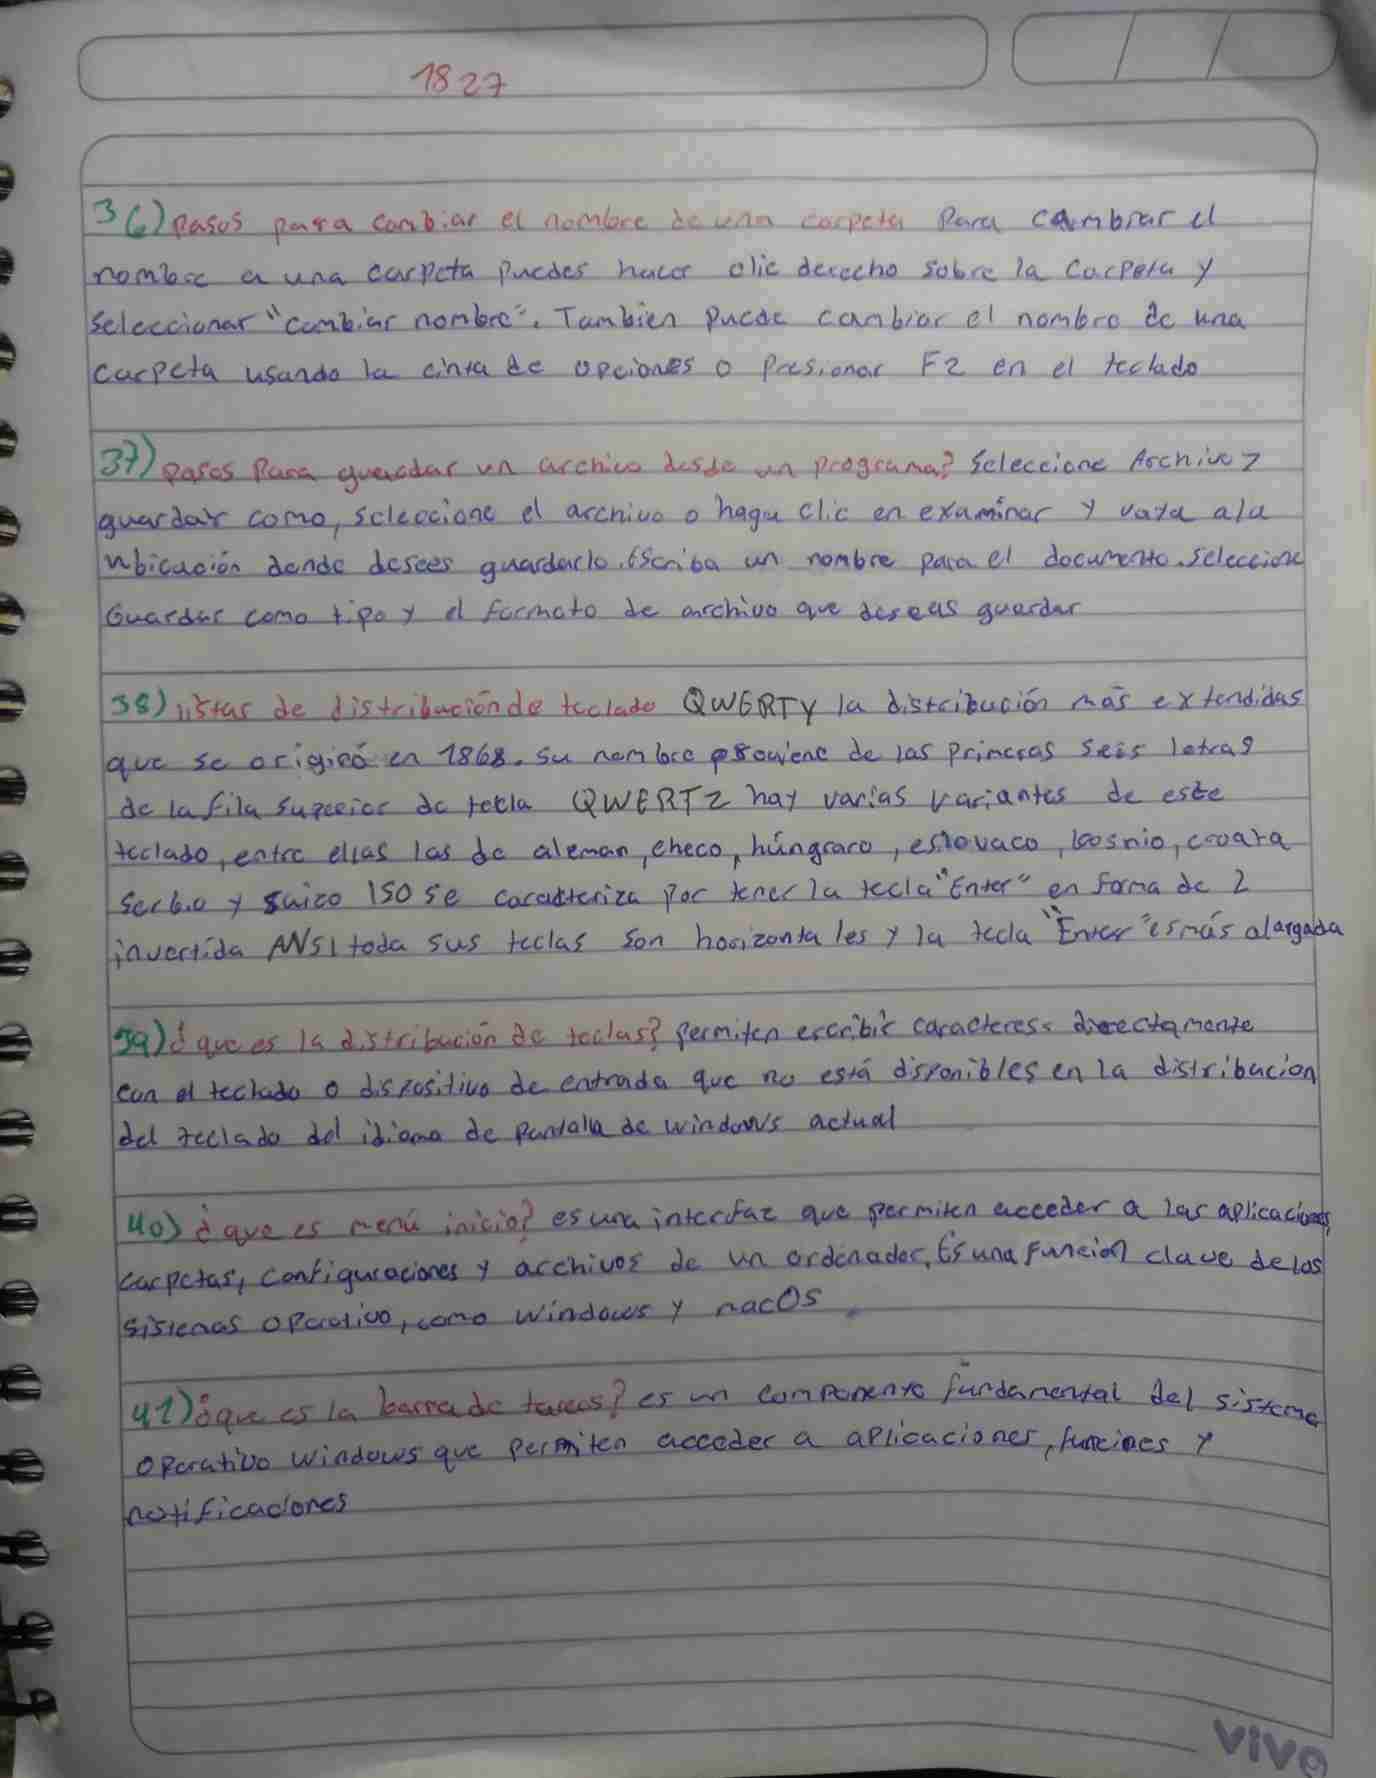 1827
36) pasos para cambiar el nombre de una carpeta Para cambiar el
nombre a una carpeta puedes hacer clic derecho sobre la carpeta y
seleccionar "cambiar nombre". Tambien puede cambiar el nombre de una
carpeta usando la cinta de opciones o presionar F2 en el teclado
37) pasos Para guardar un archivo desde un programa? Seleccione Archivo>
guardar como, seleccione el archivo o haga clic en examinar y vaya ala
ubicación donde desees guardarlo. Escriba un nombre para el documento. seleccione
Guardar como tipo y el formato de archivo que deseas guardar
38) listas de distribución de teclado QWERTY la distribución más extendidas
que se originó en 1868. su nombre proviene de las primeras seis letras
de la fila superior de tecla QWERTZ hay varias variantes de este
teclado, entre ellas las de aleman, checo, húngraro, eslovaco, bosnio, croata
serbio y suizo ISO se caracteriza por tener la tecla "Enter" en forma de L
invertida ANSI toda sus teclas son horizontales y la tecla "Enter" es más alargada
39) ¿que es la distribución de teclas? permiten escribir caracteress directamente
con el teclado o dispositivo de entrada que no está disponibles en la distribucion
del teclado del idioma de pantalla de windows actual
40) ¿que es menú inicio? es una interfaz que permiten acceder a las aplicaciones,
carpetas, configuraciones y archivos de un ordenador. Es una Función clave de los
sistemas operativo, como windows y macOS
41) ¿que es la barra de tareas? es un componente fundamental del sistema
operativo windows que permiten acceder a aplicaciones, funciones y
notificaciones
vivo